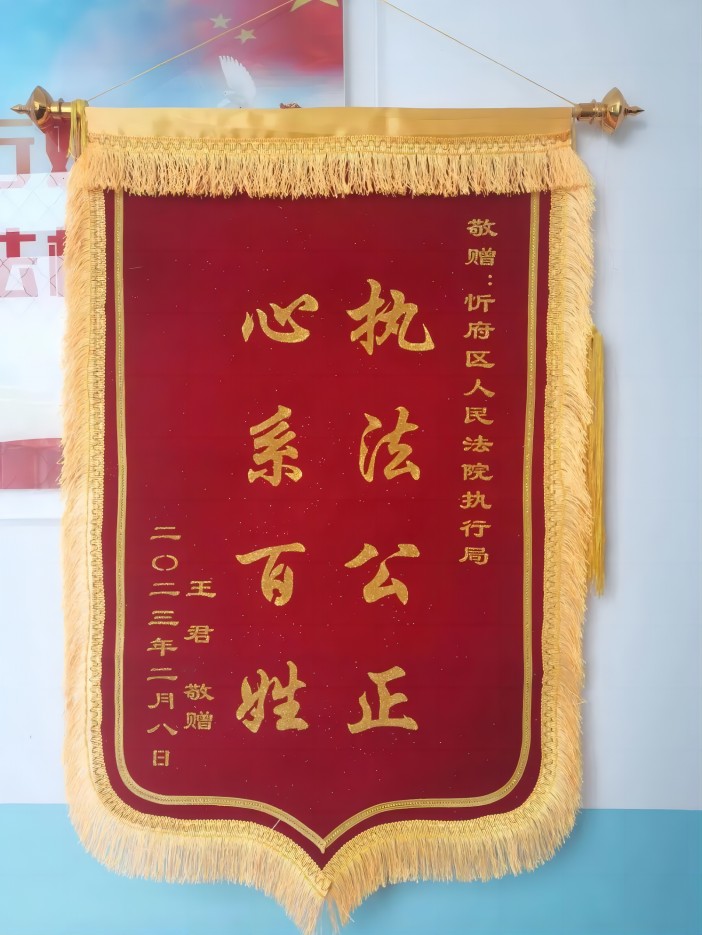 敬赠：忻府区人民法院执行局
执法公正
心系百姓
王君 敬赠
二〇二三年二月八日